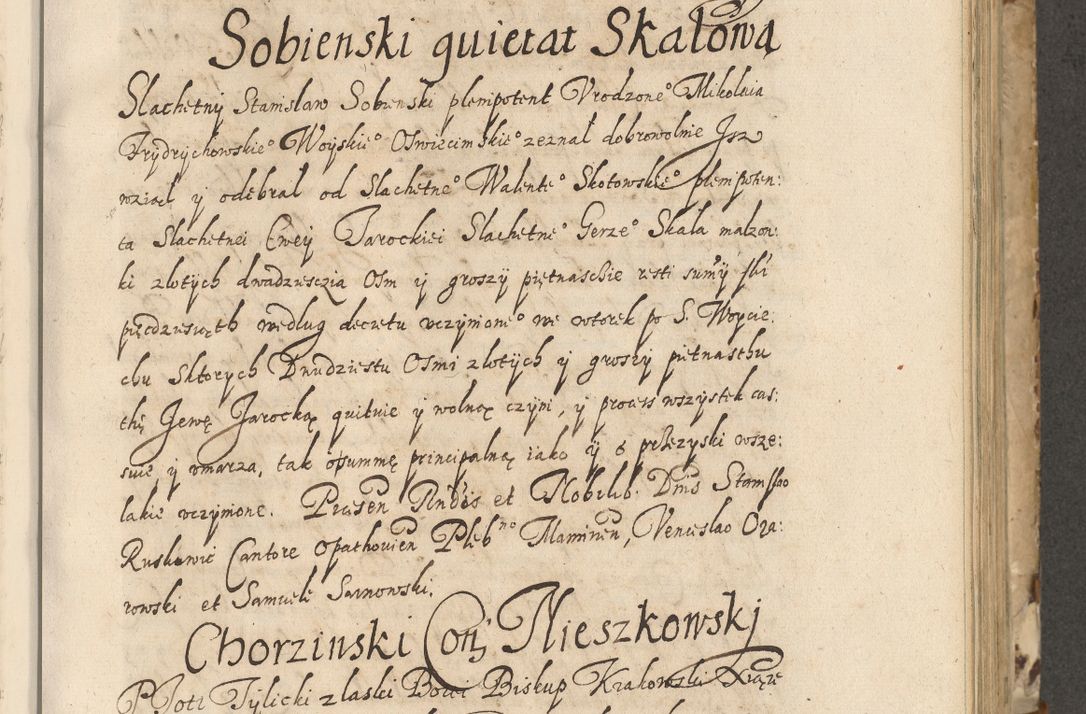 Sobienski quietat Skałowa
Slachetny Stanisław Sobienski plenipotent Vrodzone° Mikołaia
Frydrychowskie° Woyskie° Oswiecimskie° zeznał dobrowolnie Isz
wział y odebrał od Slachetne° Walente° Skotowskie° plenipoten:
ta Slachetnei Ewey Jarockiei Slachetne° Gerze° Skała małzon:
ki złotych dwadziesczia Osm y groszy piętnasczie resti sumy
pięcdziesiąth według decretu vczynione° we wtorek po S. Woycie:
chu Sktorych Dwudziestu Osmi złotych y groszy piętnasthu
thę Jewę Jarocką quituie y wolną czyni, y process wszystek cas:
suie y vmarza, tak osummę principalną iako y o przezyski wsze:
lakie vczynione. Præsen Rndis et Nobilib. Dnis Stanislao
Ruskowic Cantore Opathovien Pleb no Maminen, Venceslao Oza:
rowski et Samuele Sarnowski.
Chorzinski Conj Nieszkowskj
PJotr Tylicki z laski Bozei Biskup Krakowski Xiąze